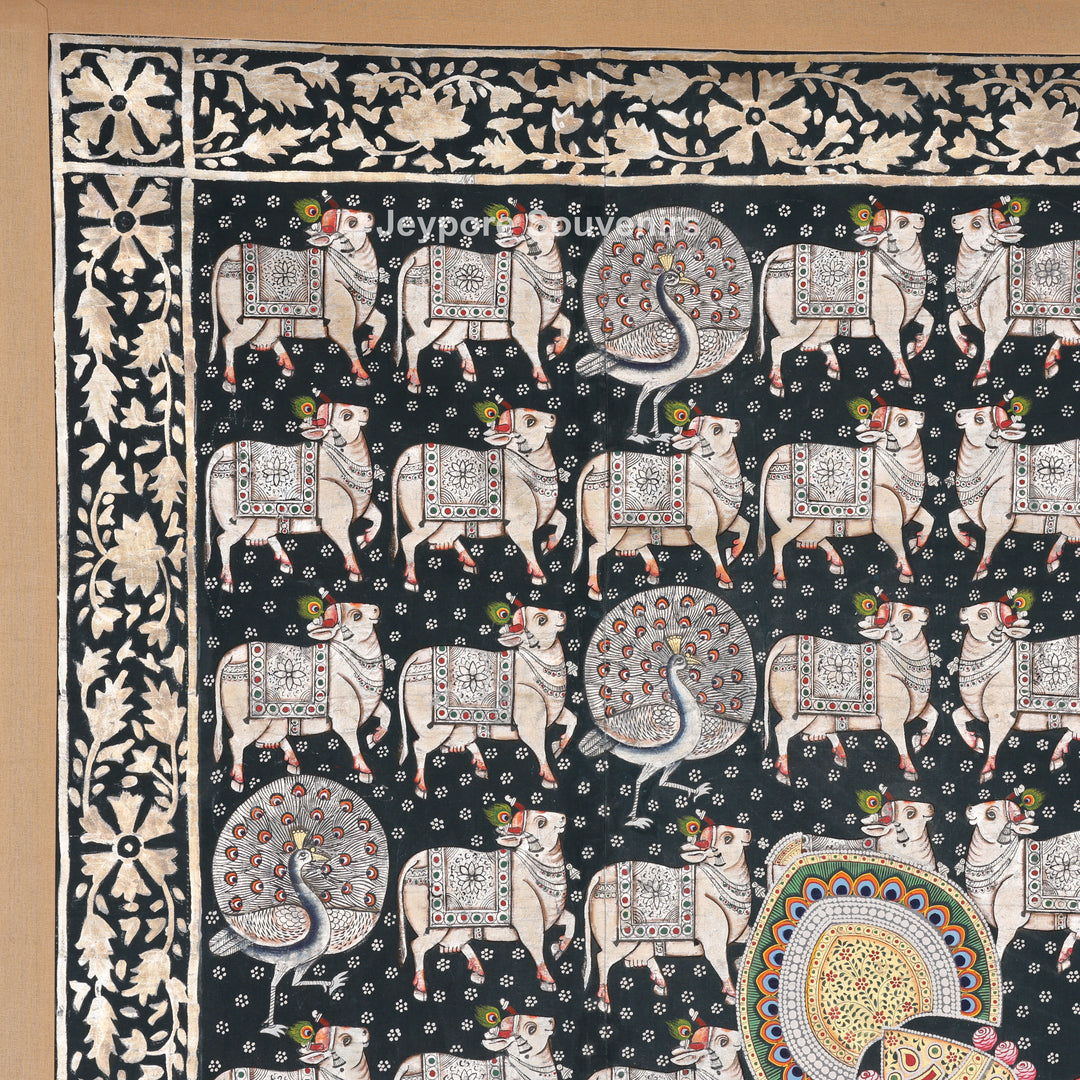 Jeypore Souvenirs